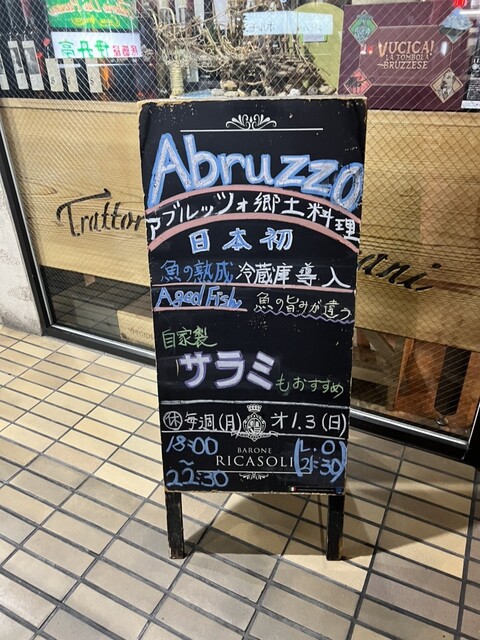 VUCICA!
LA TOMBOLA
BRUZZESE
Abruzzo
アブルッツォ郷土料理
日本初
魚の熟成 冷蔵庫導入
Aged Fish 魚の旨みが違う
自家製
サラミもおすすめ
㊡毎週(月) オ1.3(日)
18:00 (L.O
BARONE
RICASOLI
~ 21:30)
22:30
Trattor
ani